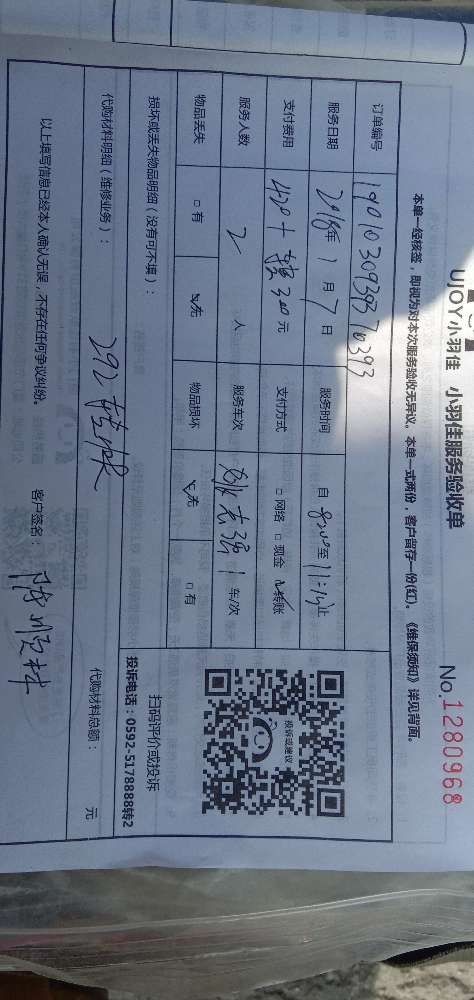 UJOY小羽佳 小羽佳服务验收单
No.1280968
本单一经核签，即视为对本次服务验收无异议。本单一式两份，客户留存一份(红)。《维保须知》详见背面。
订单编号 1901030939370393
服务日期 2018年 1 月 7 日 服务时间 自 8:20 至 11:14 止
支付费用 428+ 300 元 支付方式 □ 网络 □ 现金 ☑ 转账
服务人数 2 人 服务车次 志强 1 车/次
物品丢失 □ 有 ☑ 无 物品损坏 ☑ 无 □ 有
投诉或建议
扫码评价或投诉
投诉电话：0592-5178888转2
损坏或丢失物品明细（没有可不填）：
代购材料明细（维修业务）： 292 代购材料总额： 元
以上填写信息已经本人确认无误，不存在任何争议纠纷。 客户签名： 陈顺